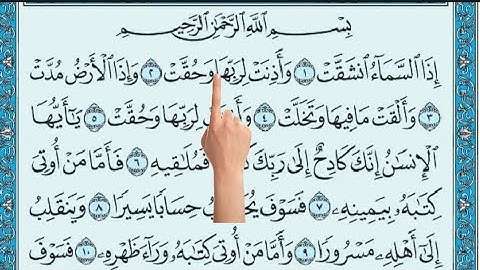 بِسْمِ ٱللَّهِ ٱلرَّحْمَٰنِ ٱلرَّحِيمِ
إِذَا ٱلسَّمَآءُ ٱنشَقَّتْ ١ وَأَذِنَتْ لِرَبِّهَا وَحُقَّتْ ٢ وَإِذَا ٱلْأَرْضُ مُدَّتْ
٣ وَأَلْقَتْ مَا فِيهَا وَتَخَلَّتْ ٤ لِرَبِّهَا وَحُقَّتْ ٥ يَٰٓأَيُّهَا
ٱلْإِنسَٰنُ إِنَّكَ كَادِحٌ إِلَىٰ رَبِّكَ فَمُلَٰقِيهِ ٦ فَأَمَّا مَنْ أُوتِىَ
كِتَٰبَهُۥ بِيَمِينِهِۦ ٧ فَسَوْفَ حِسَابًا يَسِيرًا ٨ وَيَنقَلِبُ
إِلَىٰٓ أَهْلِهِۦ مَسْرُورًا ٩ وَأَمَّا مَنْ أُوتِىَ كِتَٰبَهُۥ وَرَآءَ ظَهْرِهِۦ ١٠ فَسَوْفَ